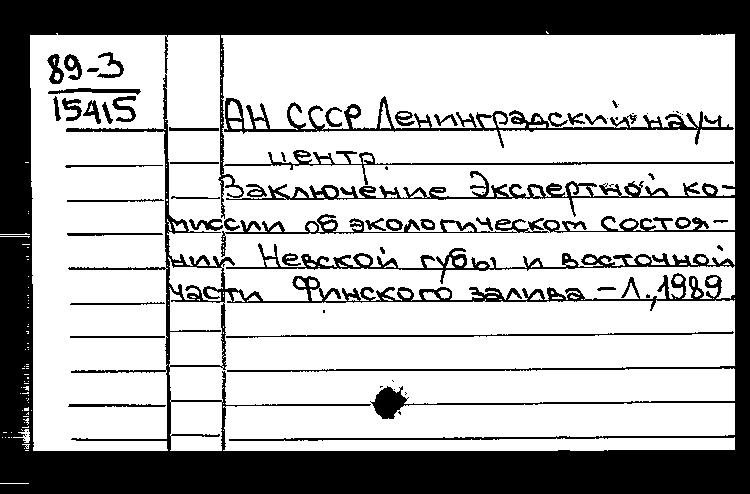 89-3
15415
АН СССР Ленинградский науч.
центр.
Заключение Экспертной ко-
миссии об экологическом состоя-
нии Невской губы и восточной
части Финского залива – Л., 1989.